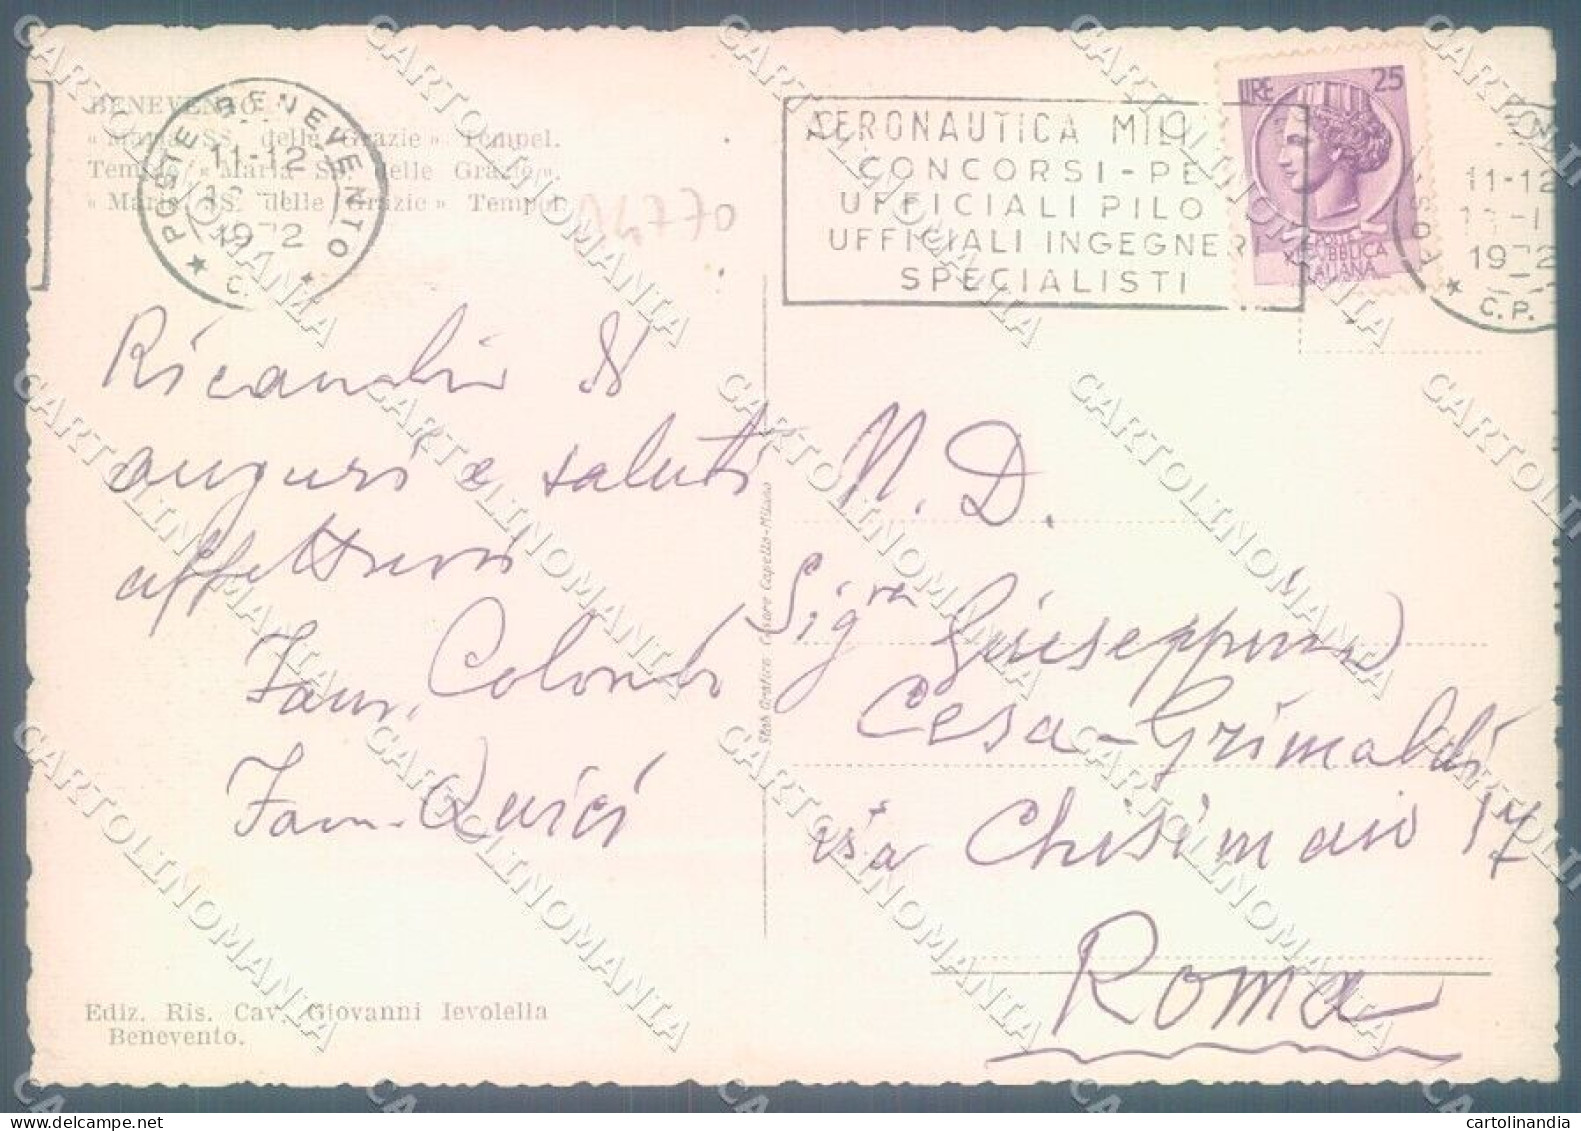 BENEVENTO
« Maria SS. delle Grazie » Tempel.
Tempio « Maria SS. delle Grazie ».
« Maria SS. delle Grazie » Tempel.
POSTE BENEVENTO
11-12
1972
C.
14770
AERONAUTICA MIL
CONCORSI-PE
UFFICIALI PILO
UFFICIALI INGEGNERI
SPECIALISTI
LIRE 25
POSTE
REPUBBLICA
ITALIANA
11-12
1972
C.P.
Ricambi
auguri e saluti
affettuosi
Fam. Colombo
Fam. Quici
N. D.
Sig.ra Giuseppina
Cesa-Grimaldi
via Chisimaio 17
Roma
Stab. Grafico Cesare Capello-Milano
Ediz. Ris. Cav. Giovanni Ievolella
Benevento.
CARTOLINOMANIA
cartolinandia